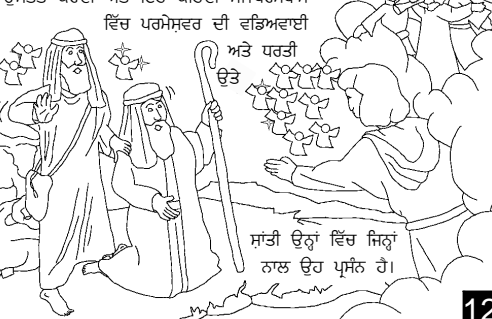 ਵਿੱਚ ਪਰਮੇਸ਼ਵਰ ਦੀ ਵਡਿਅਵਾਈ
ਅਤੇ ਧਰਤੀ
ਉਤੇ
ਸ਼ਾਂਤੀ ਉਨ੍ਹਾਂ ਵਿੱਚ ਜਿਨ੍ਹਾਂ
ਨਾਲ ਉਹ ਪ੍ਰਸੰਨ ਹੈ।
12